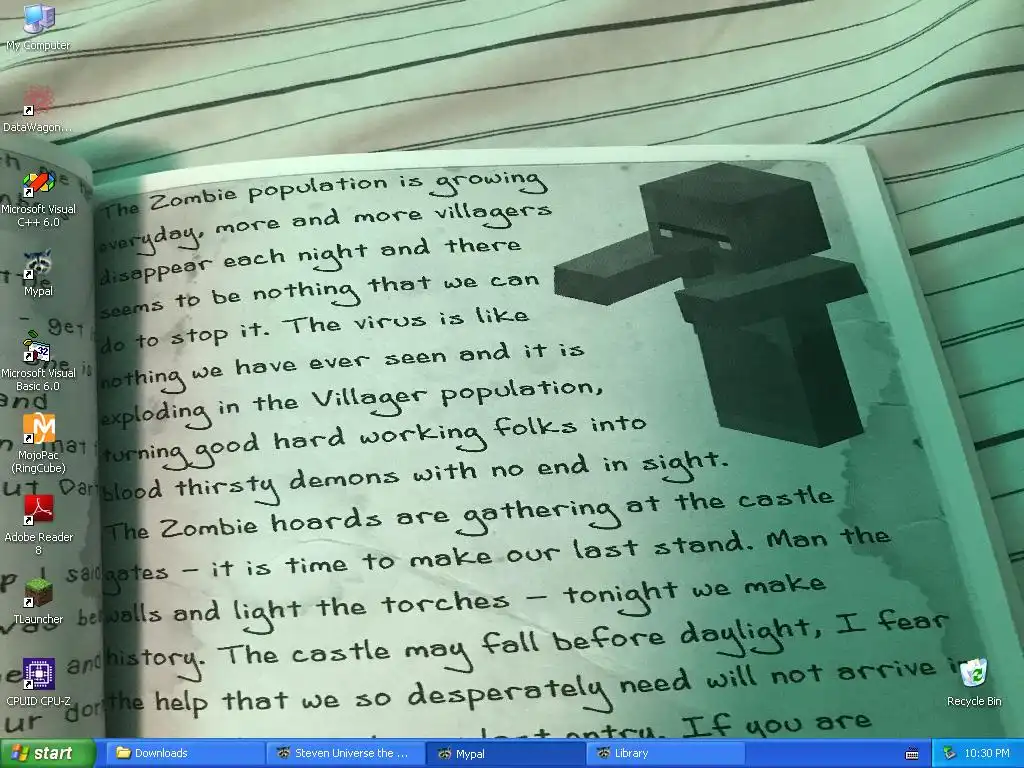 My Computer
DataWagon...
Microsoft Visual
C++ 6.0
Mypal
Microsoft Visual
Basic 6.0
MojoPac
(RingCube)
Adobe Reader
8
TLauncher
CPUID CPU-Z
The Zombie population is growing
everyday, more and more villagers
disappear each night and there
seems to be nothing that we can
do to stop it. The virus is like
nothing we have ever seen and it is
exploding in the Villager population,
turning good hard working folks into
blood thirsty demons with no end in sight.
The Zombie hoards are gathering at the castle
gates – it is time to make our last stand. Man the
walls and light the torches – tonight we make
history. The castle may fall before daylight, I fear
the help that we so desperately need will not arrive
entry. If you are
- get
and
I said
and
Recycle Bin
start
Downloads
Steven Universe the ...
Mypal
Library
10:30 PM